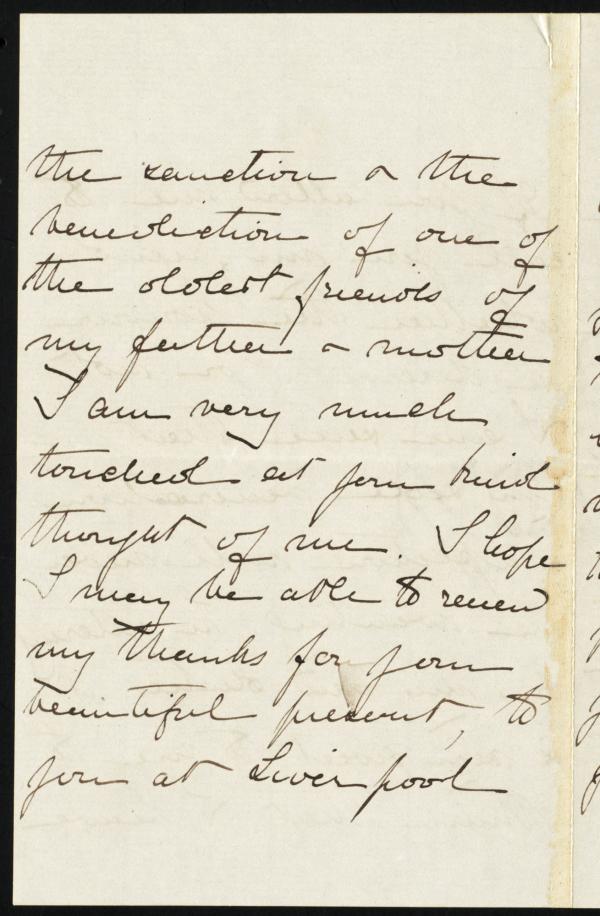 the sanction & the
benediction of one of
the oldest friends of
my father & mother
I am very much
touched at your kind
thought of me. I hope
I may be able to renew
my thanks for your
beautiful present, to
you at Liverpool